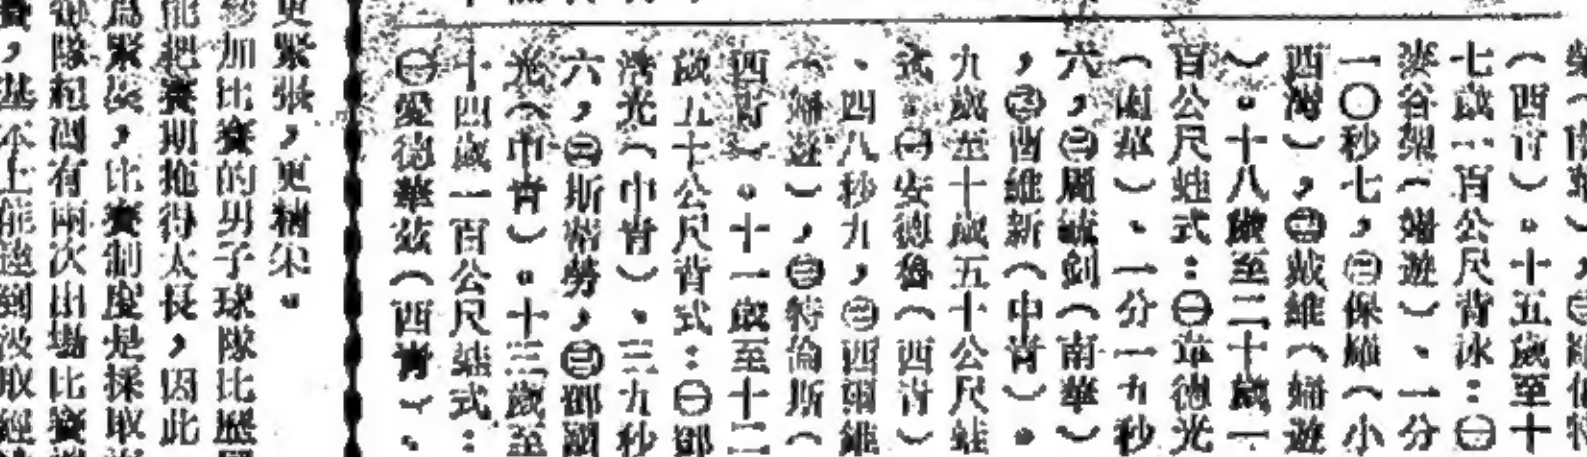 榮（南華），㊂
（西青）。十五歲至十
七歲一百公尺背泳：㊀
麥谷架（婦遊）、一分
一〇秒七，㊁保羅（小
西灣），㊂戴維（婦遊
）。十八歲至二十歲一
百公尺蛙式：㊀韋德光
（南華）、一分一九秒
六，㊁周毓劍（南華）
，㊂曹維新（中青）。
九歲至十歲五十公尺蛙
式：㊀安德魯（西青）
、四八秒九，㊁西爾維
（婦遊），㊂特倫斯（
西青）。十一歲至十二
歲五十公尺背式：㊀鄧
浩光（中青）、三九秒
六，㊁斯蒂勞，㊂鄧國
光（中青）。十三歲至
十四歲一百公尺蛙式：
㊀愛德華茲（西青）、
更緊張，更精采。
參加比賽的男子球隊比歷
能把賽期拖得太長，因此
為緊湊，比賽制度是採取
球隊相隔有兩次出場比賽
，基本上能達到汲取經